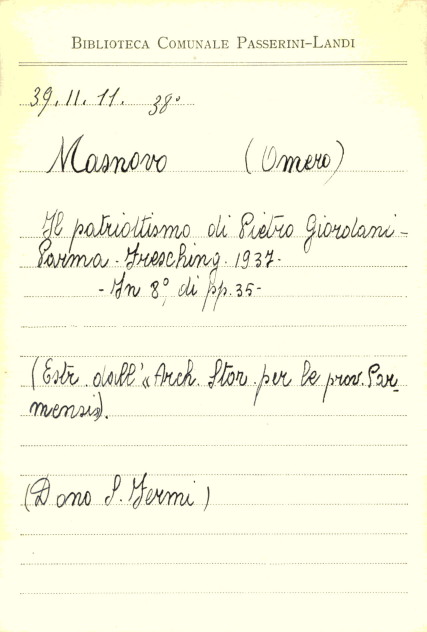 BIBLIOTECA COMUNALE PASSERINI-LANDI
39. II. 11. 38°
Masnovo (Omero)
Il patriottismo di Pietro Giordani -
Parma - Fresching. 1937 -
- In 8°, di pp. 35 -
(Estr. dall'« Arch. Stor. per le prov. Par-
mensi»).
(Dono S. Fermi)